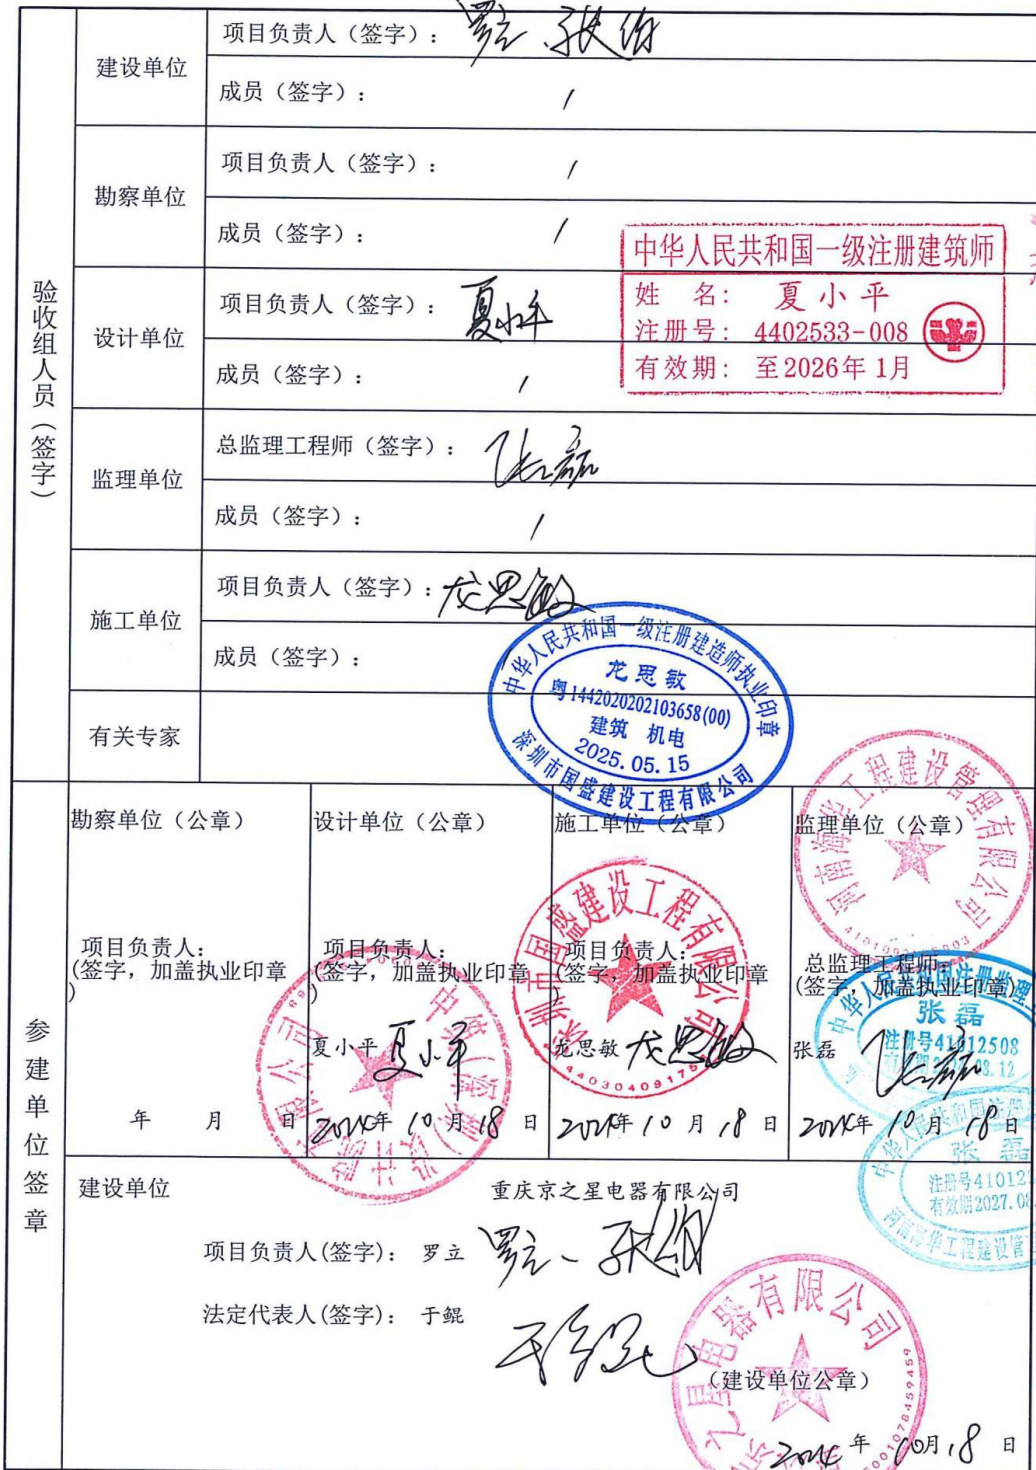 验收组人员(签字)
建设单位
项目负责人（签字）：罗立、张
成员（签字）： /
勘察单位
项目负责人（签字）： /
成员（签字）： /
设计单位
项目负责人（签字）：夏小平
成员（签字）： /
中华人民共和国一级注册建筑师
姓 名： 夏小平
注册号： 4402533-008
有效期： 至2026年1月
监理单位
总监理工程师（签字）：张磊
成员（签字）： /
施工单位
项目负责人（签字）：龙思敏
成员（签字）：
中华人民共和国一级注册建造师执业印章
龙思敏
粤1442020202103658(00)
建筑 机电
2025.05.15
深圳市国盛建设工程有限公司
有关专家
参建单位签章
勘察单位（公章）
项目负责人：
(签字，加盖执业印章
)
年 月 日
设计单位（公章）
项目负责人：
(签字，加盖执业印章
)
夏小平 夏小平
2024年10月18日
施工单位（公章）
深圳市国盛建设工程有限公司
项目负责人：
(签字，加盖执业印章
)
龙思敏 龙思敏
2024年10月18日
监理单位（公章）
河南海华工程建设管理有限公司
总监理工程师：
(签字，加盖执业印章)
张磊
注册号41012508
张磊 张磊
2024年10月18日
张磊
注册号41012
有效期2027.0
建设单位
重庆京之星电器有限公司
项目负责人(签字)： 罗立 罗立、张
法定代表人(签字)： 于鲲 于鲲
（建设单位公章）
2024年10月18日